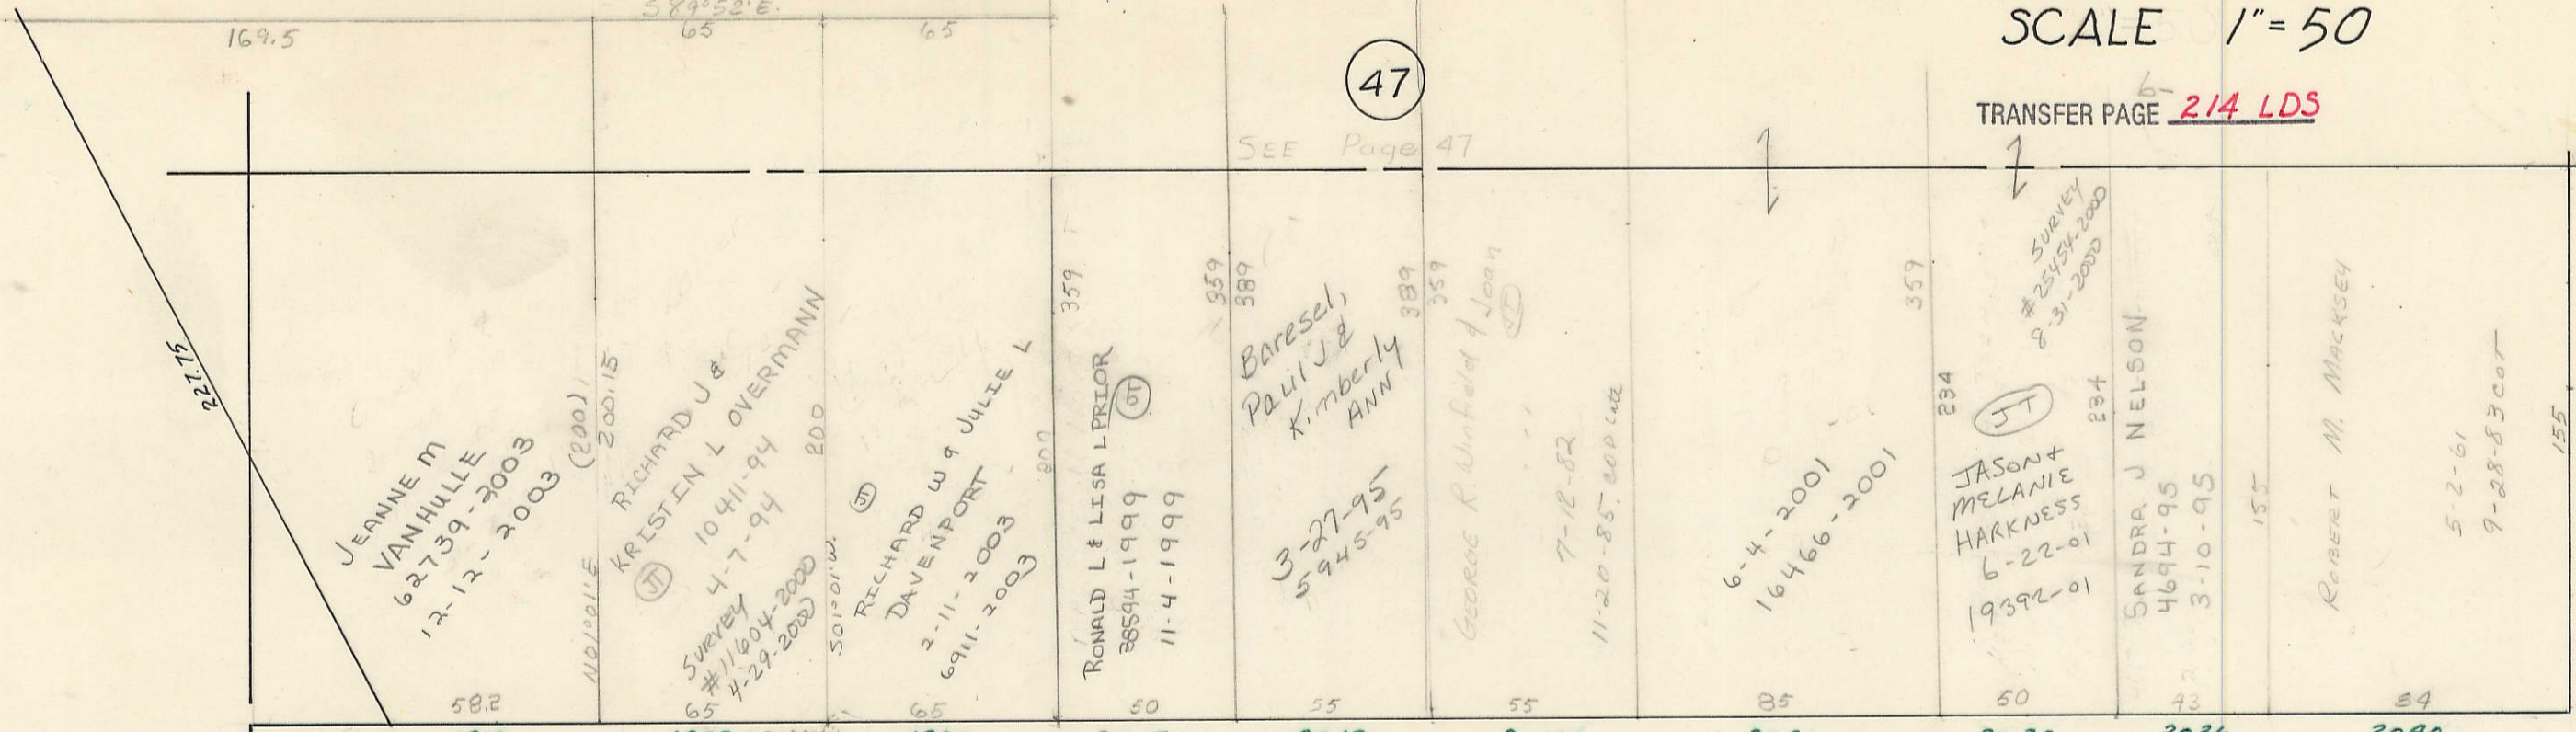 S89°52'E.
169.5
65
65
47
SCALE 1"=50
TRANSFER PAGE 214 LDS
SEE Page 47
227.75
JEANNE M
VANHULLE
62739-2003
12-12-2003
(200)
200.15
N01°01'E
58.2
RICHARD J &
KRISTIN L OVERMANN
JT
10411-94
4-7-94
SURVEY
#11604-2000
4-29-2000
65
200
S01°01'W.
JT
RICHARD W & JULIE L
DAVENPORT
2-11-2003
6911-2003
65
200
359
RONALD L & LISA L PRIOR
JT
38594-1999
11-4-1999
50
359
389
Baresel,
Paul J &
Kimberly
ANN
3-27-95
5945-95
55
389
359
GEORGE R. Winfield & Joan
JT
7-12-82
11-20-85
55
6-4-2001
16466-2001
85
359
234
SURVEY
#25454-2000
8-31-2000
JT
JASON &
MELANIE
HARKNESS
6-22-01
19392-01
50
234
SANDRA J NELSON
4694-95
3-10-95
43
155
ROBERT M. MACKSEY
5-2-61
9-28-83 COT
84
155